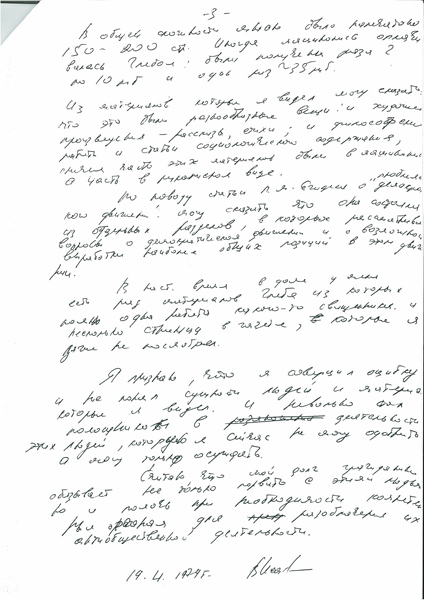 - 3 -
В общей сложности мною было напечатано
150-200 ст. Иногда машинопись
Глебом: были получены раза 2
по 10 руб и один раз 35 руб.
Из материалов которые я видел могу сказать:
что это были разнообразные вещи: и художеств
произведения - рассказы, стихи; и философские
работы и статьи социологического содержания,
причем часть этих материалов были в машинописи
а часть в рукописном виде.
По поводу статьи о демокра
ком движении могу сказать что она состояла
из отдельных разделов, в которых рассматрив
вопросы о демократическом движении и о возможной
выработке наиболее общих позиций в этом дви
нии.
В наст. время в доме у меня
есть ряд материалов Глеба из которых
помню одна работа какого-то священника и
несколько страниц в , которые я
даже не посмотрел.
Я признаю, что я совершил ошибку
и не понял сущности людей и материа
которые я видел. И невольно был
в деятельности
этих людей, которую я сейчас не могу одобрить
а могу только осудить.
Считаю что мой долг гражданина
обязывает не только порвать с этими людьми
но и помочь при необходимости
для разоблачения их
антиобщественной деятельности.
19.4.1974 г.